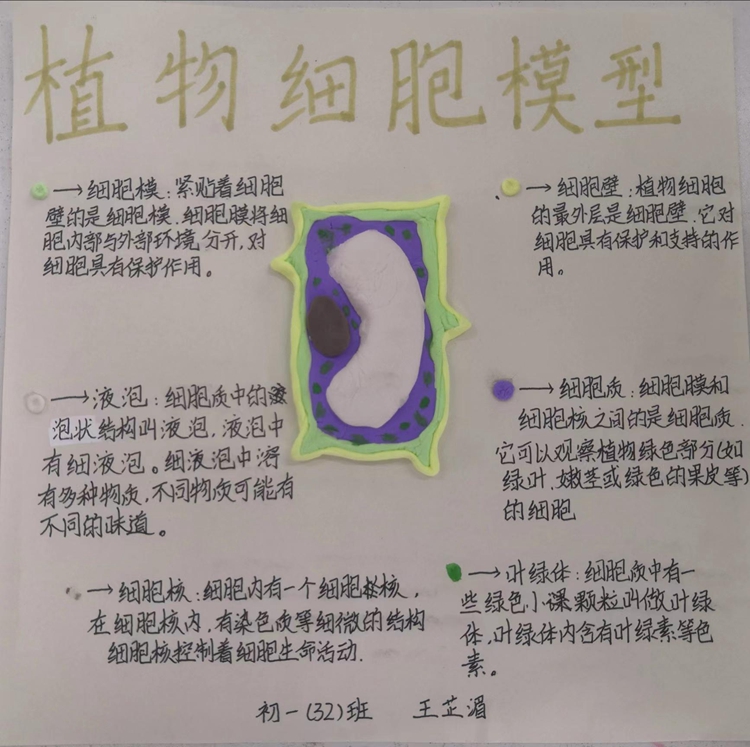 植物细胞模型
→细胞模：紧贴着细胞
壁的是细胞模．细胞膜将细
胞内部与外部环境分开，对
细胞具有保护作用。
→细胞壁：植物细胞
的最外层是细胞壁．它对
细胞具有保护和支持的作
用。
→液泡：细胞质中的
泡状结构叫液泡，液泡中
有细液泡。细液泡中溶
有多种物质，不同物质可能有
不同的味道。
→细胞质：细胞膜和
细胞核之间的是细胞质．
它可以观察植物绿色部分(如
绿叶．嫩茎或绿色的果皮等)
的细胞
→细胞核：细胞内有一个细胞核，
在细胞核内，有染色质等细微的结构
细胞核控制着细胞生命活动．
→叶绿体：细胞质中有一
些绿色小课颗粒叫做叶绿
体，叶绿体内含有叶绿素等色
素。
初一(32)班 王芷湄